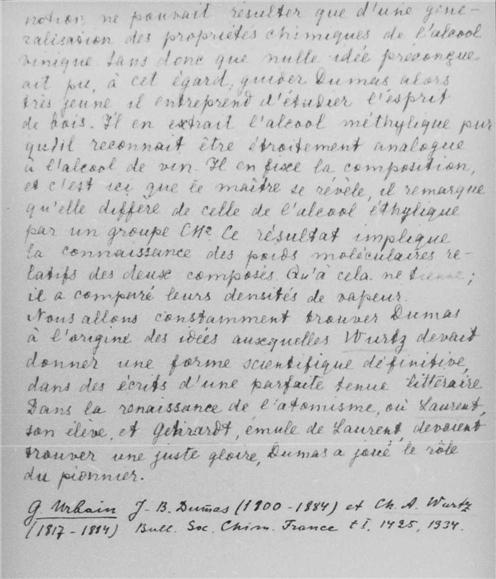 notion ne pouvait résulter que d'une géné-
ralisation des propriétés chimiques de l'alcool
vinique. Sans donc que nulle idée préconçue
ait pu, à cet égard, guider Dumas alors
très jeune il entreprend d'étudier l'esprit
de bois. Il en extrait l'alcool méthylique pur
qu'il reconnait être étroitement analogue
à l'alcool de vin. Il en fixe la composition,
et c'est ici que le maître se révèle, il remarque
qu'elle différe de celle de l'alcool éthylique
par un groupe CH². Ce résultat implique
la connaissance des poids moléculaires re-
latifs des deux composés. Qu'à cela ne tienne;
il a comparé leurs densités de vapeur.
Nous allons constamment trouver Dumas
à l'origine des idées auxquelles Wurtz devait
donner une forme scientifique définitive,
dans des écrits d'une parfaite tenue littéraire.
Dans la renaissance de l'atomisme, où Laurent,
son élève, et Gehrardt, emule de Laurent, devaient
trouver une juste gloire, Dumas a joué le rôle
du pionnier.
G Urbain J.-B. Dumas (1800-1884) et Ch. A. Wurtz
(1817-1884) Bull. Soc. Chim. France t I, 1425, 1934.